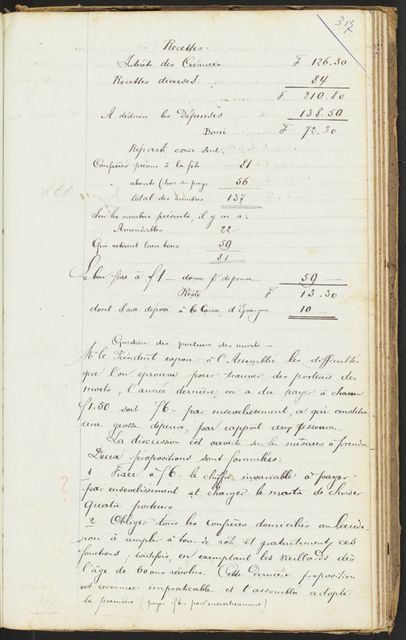 319
Recettes.
Intérêts des Créances F 126.30
Recettes diverses 84
F. 210.80
A déduire les Dépenses 138.50
Boni F 72.30
Répart comme suit:
Confrères présents à la fête 81
absents (hors du pays 56
total des membres 137
Sur les membres présents, il y en a:
Amendables 22
Qui retirent leurs bons 59
81
Le bon fixé à f1 — donne pr dépense 59 —
Reste F 13.30
dont sera déposé à la Caisse d'Epargne 10 —
Question des porteurs des morts —
Mr le Président expose à l'Assemblée les difficultés
que l'on éprouve pour trouver des porteurs des
morts, l'année dernière, on a dû payer à chacun
f1.50 soit f6 — par ensevelissement, ce qui constitue
une grosse dépense, par rapport aux
La discussion est ouverte sur les mesures à prendre
Deux propositions sont formulées:
1 Fixer à f6 — le chiffre invariable à payer
par ensevelissement et charger le de choisir
quatre porteurs
? 2 Obliger tous les Confrères domiciliés au
à remplir à tour de rôle et gratuitement, ces
fonctions, toutefois en exemptant les vieillards dès
l'âge de 60 ans révolus. Cette dernière proposition
est reconnue impraticable et l'assemblée adopte
la première (payer f6 — par ensevelissement)